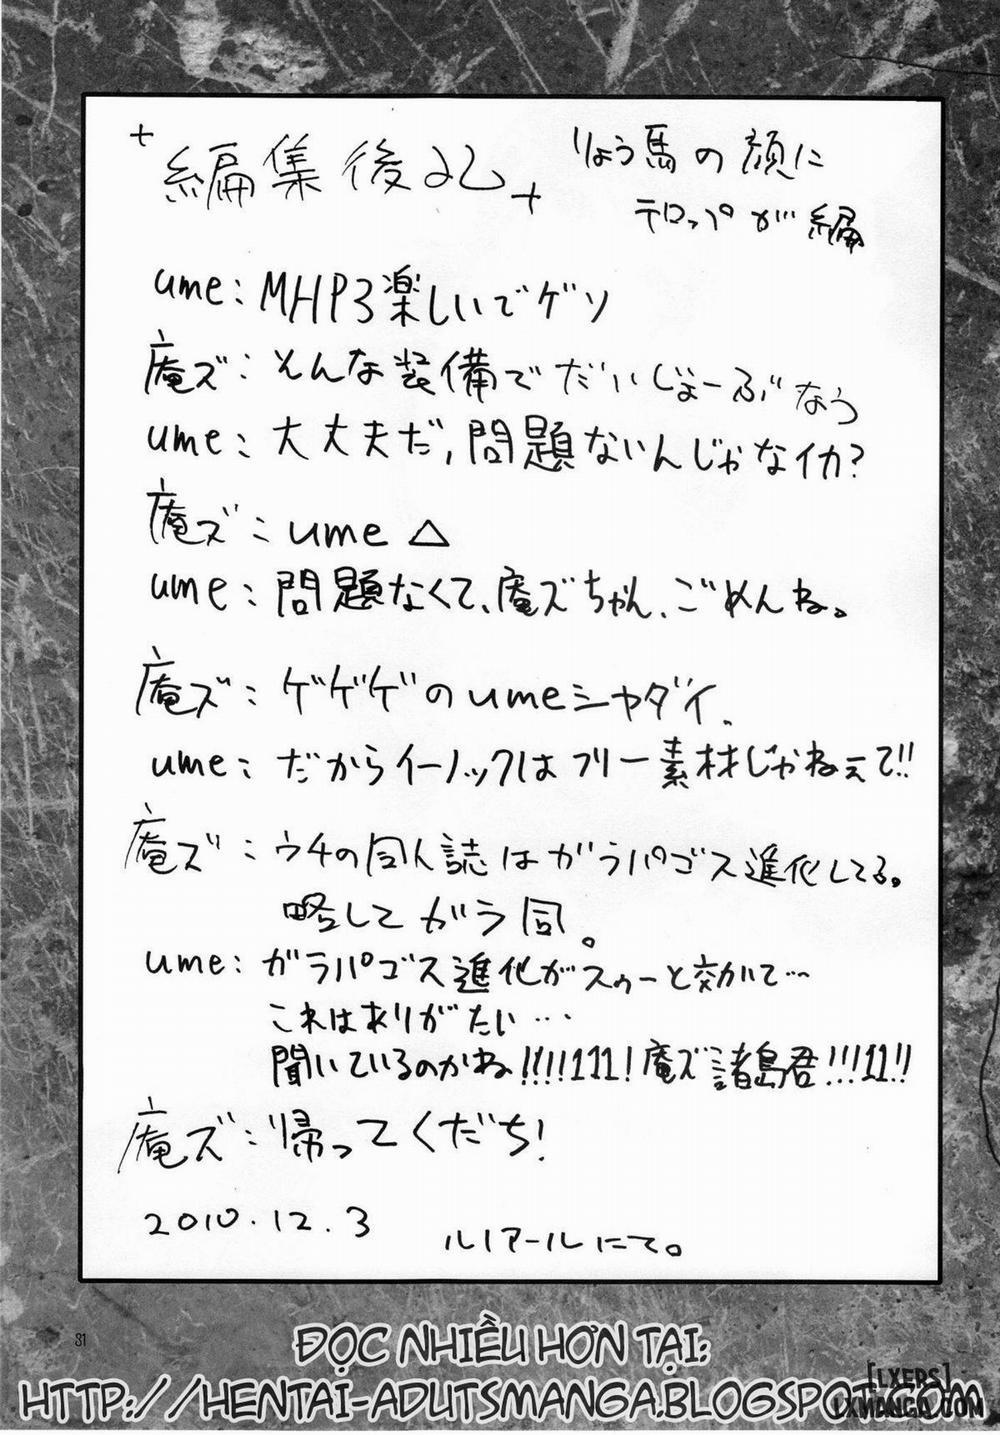 + 編集後記 +
りょう馬の顔に
テロップが編
ume:MHP3楽しいでゲソ
庵ズ:そんな装備でだいじょーぶなう
ume:大丈夫だ,問題ないんじゃなイカ?
庵ズ:ume△
ume:問題なくて、庵ズちゃん、ごめんね。
庵ズ:ゲゲゲのumeシャダイ、
ume:だからイーノックはフリー素材じゃねぇて!!
庵ズ:ウチの同人誌はガラパゴス進化してる。
略してガラ同。
ume:ガラパゴス進化がスゥーと効いて…
これはありがたい…
聞いているのかね!!!!111!庵ズ諸島君!!!11!!
庵ズ:帰ってくだち!
2010.12.3
ルノアールにて。
31
ĐỌC NHIỀU HƠN TẠI:
HTTP://HENTAI-ADUTSMANGA.BLOGSPOT.COM
[LXERS]
LXMANGA.COM